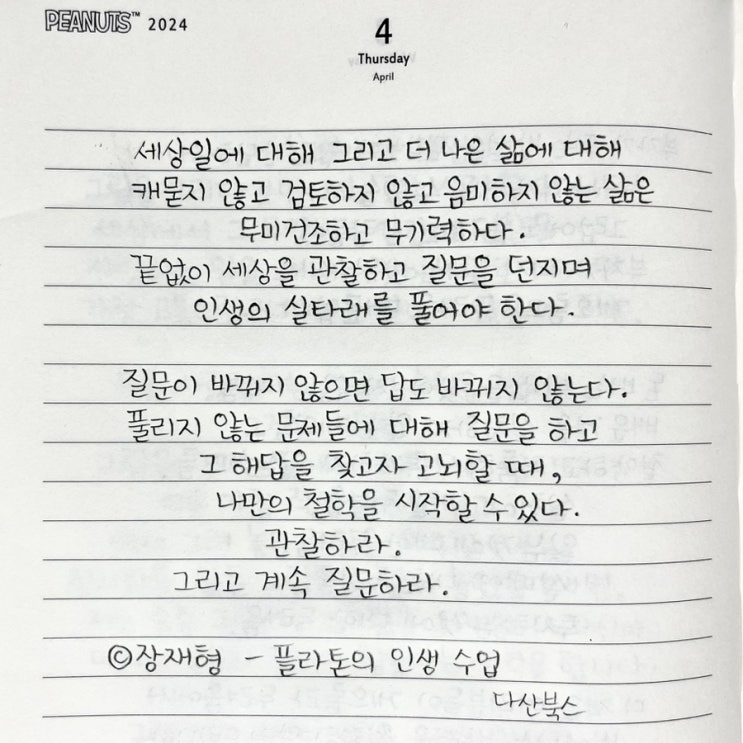 PEANUTS™ 2024
4
Thursday
April
세상일에 대해 그리고 더 나은 삶에 대해
캐묻지 않고 검토하지 않고 음미하지 않는 삶은
무미건조하고 무기력하다.
끝없이 세상을 관찰하고 질문을 던지며
인생의 실타래를 풀어야 한다.
질문이 바뀌지 않으면 답도 바뀌지 않는다.
풀리지 않는 문제들에 대해 질문을 하고
그 해답을 찾고자 고뇌할 때,
나만의 철학을 시작할 수 있다.
관찰하라.
그리고 계속 질문하라.
©장재형 - 플라톤의 인생 수업
다산북스